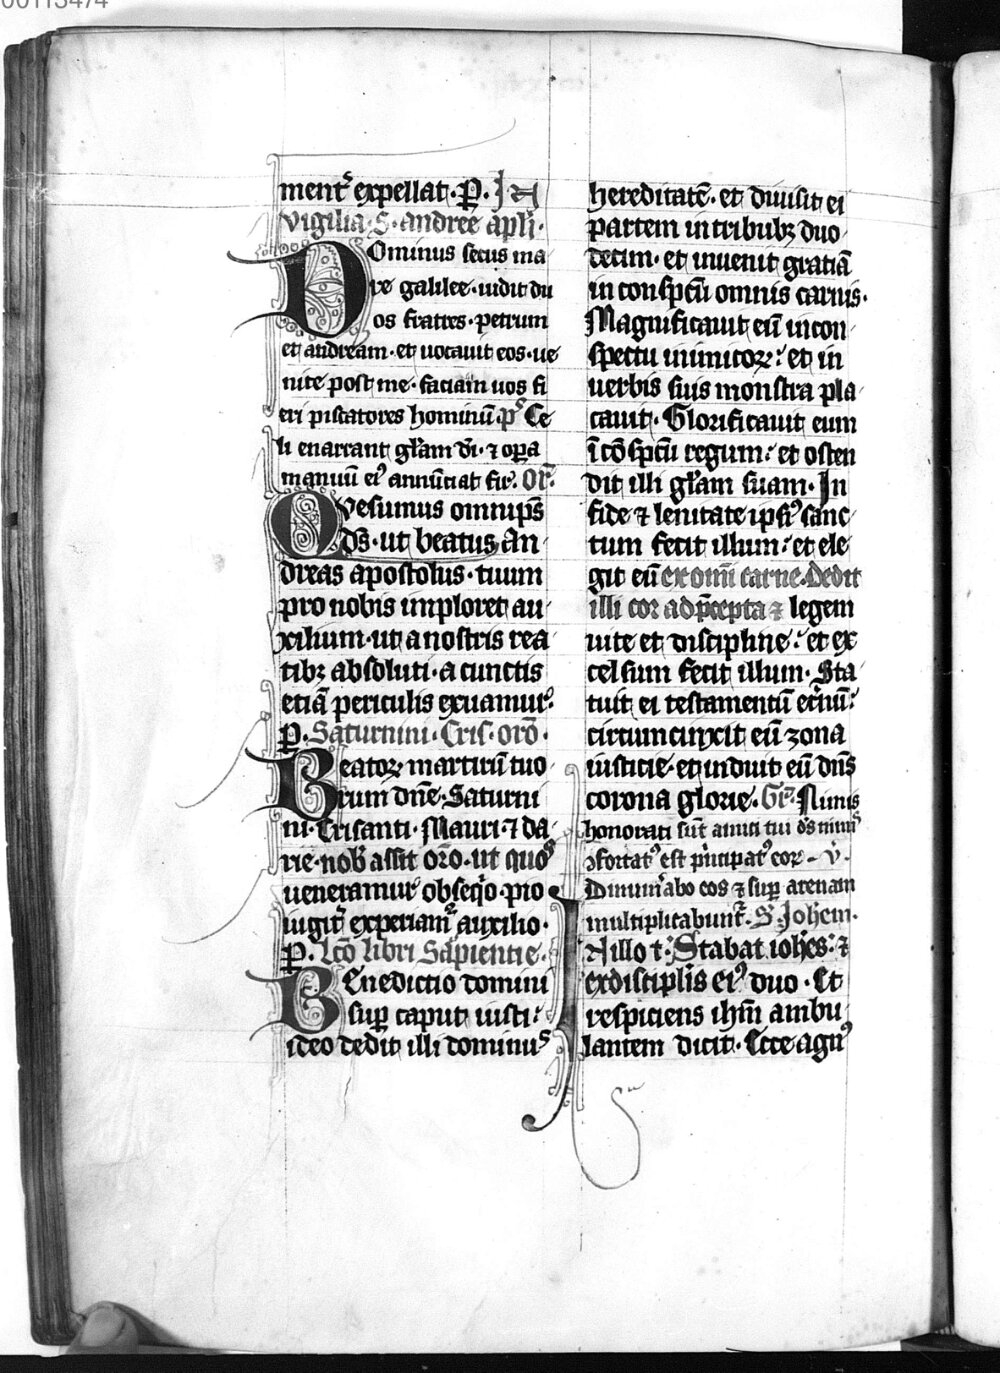 00113474
ment᷑ expellat · P. In
vigilia · S · andree apl̅i ·
Dominus secus ma
re galilee · uidit du
os fratres · petrum
et andream · et uocauit eos · ue
nite post me · faciam uos fi
eri piscatores hominū · pꝰ Ce
li enarrant gl̅am dī · ⁊ oꝑa
manuū eiꝰ annūciat fir. Or̅.
Quesumus omnip̅s
d̅s · ut beatus An
dreas apostolus · tuum
pro nobis imploret au
xilium · ut a nostris rea
tibꝫ absoluti · a cunctis
etiā periculis exuamur᷑.
P. Saturnini · Cris · orō ·
Beatoꝝ martirū tuo
rum dn̅e · Saturni
ni · Crisanti · Mauri · ⁊ da
rie · nob̅ assit orō · ut quoꝰ
ueneramur᷑ obseq̅o · pio
iugit᷑ experiam᷑ auxilio ·
P. Lc̅o libri Sapientie ·
Benedictio domini
suꝑ caput iusti :
ideo dedit illi dominuꝰ
hereditatē · et diuisit ei
partem in tribubꝫ duo
decim · et inuenit gratiā
in conspc̅u omnis carnis ·
Magnificauit eū in con
spectu inimicoꝝ : et in
uerbis suis monstra pla
cauit · Glorificauit eum
ī cō spc̅u regum : et osten
dit illi gl̅am suam · In
fide ⁊ lenitate ipsiꝰ sanc
tum fecit illum : et ele
git eū ex omī carne · Dedit
illi cor ad p̅cepta ⁊ legem
uite et discipline : et ex
celsum fecit illum · Sta
tuit ei testamentū et̅nū :
circumcinxit eū zona
iusticie · et induit eū dn̅s
corona glorie · Gr̅. Nimis
honorati sūt amici tui d̅s nimiꝰ
ꝯfortatꝰ est p̅ncipatꝰ eoꝝ – v̅.
Dinum̅abo eos ⁊ suꝑ arenam
multiplicabunt᷑. S. Johem.
In illo t̅. Stabat ioh̅es : ⁊
ex discipl̅is eiꝰ duo · Et
respiciens ih̅m ambu
lantem dicit · Ecce agnꝰ